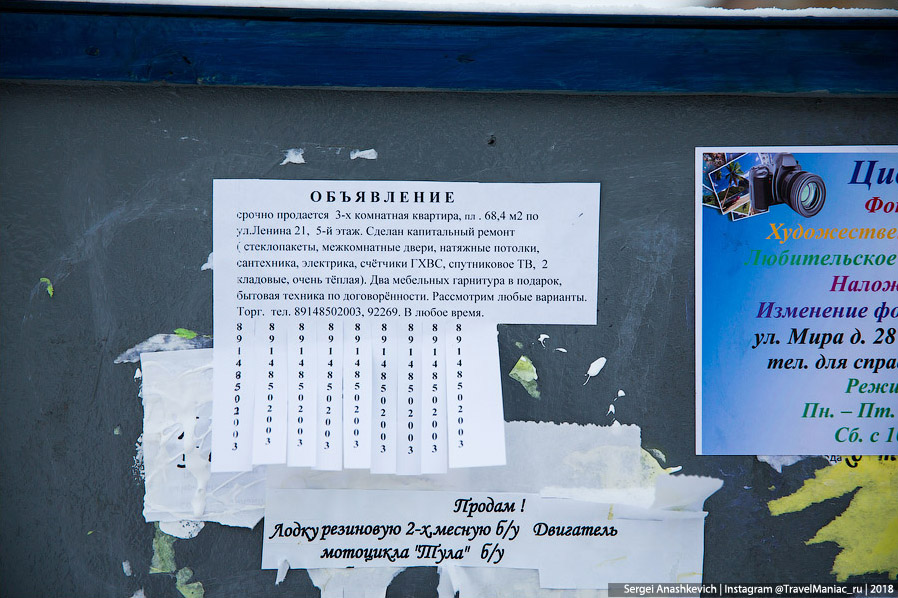 ОБЪЯВЛЕНИЕ
срочно продается 3-х комнатная квартира, пл . 68,4 м2 по
ул.Ленина 21, 5-й этаж. Сделан капитальный ремонт
( стеклопакеты, межкомнатные двери, натяжные потолки,
сантехника, электрика, счётчики ГХВС, спутниковое ТВ, 2
кладовые, очень тёплая). Два мебельных гарнитура в подарок,
бытовая техника по договорённости. Рассмотрим любые варианты.
Торг. тел. 89148502003, 92269. В любое время.
89148502003
89148502003
89148502003
89148502003
89148502003
89148502003
89148502003
89148502003
89148502003
Продам !
Лодку резиновую 2-х,месную б/у Двигатель
мотоцикла "Тула" б/у
Фо
Художестве
Любительское
Налож
Изменение фо
ул. Мира д. 28
тел. для спра
Режи
Пн. – Пт.
Сб. с 1
Sergei Anashkevich | Instagram @TravelManiac_ru | 2018